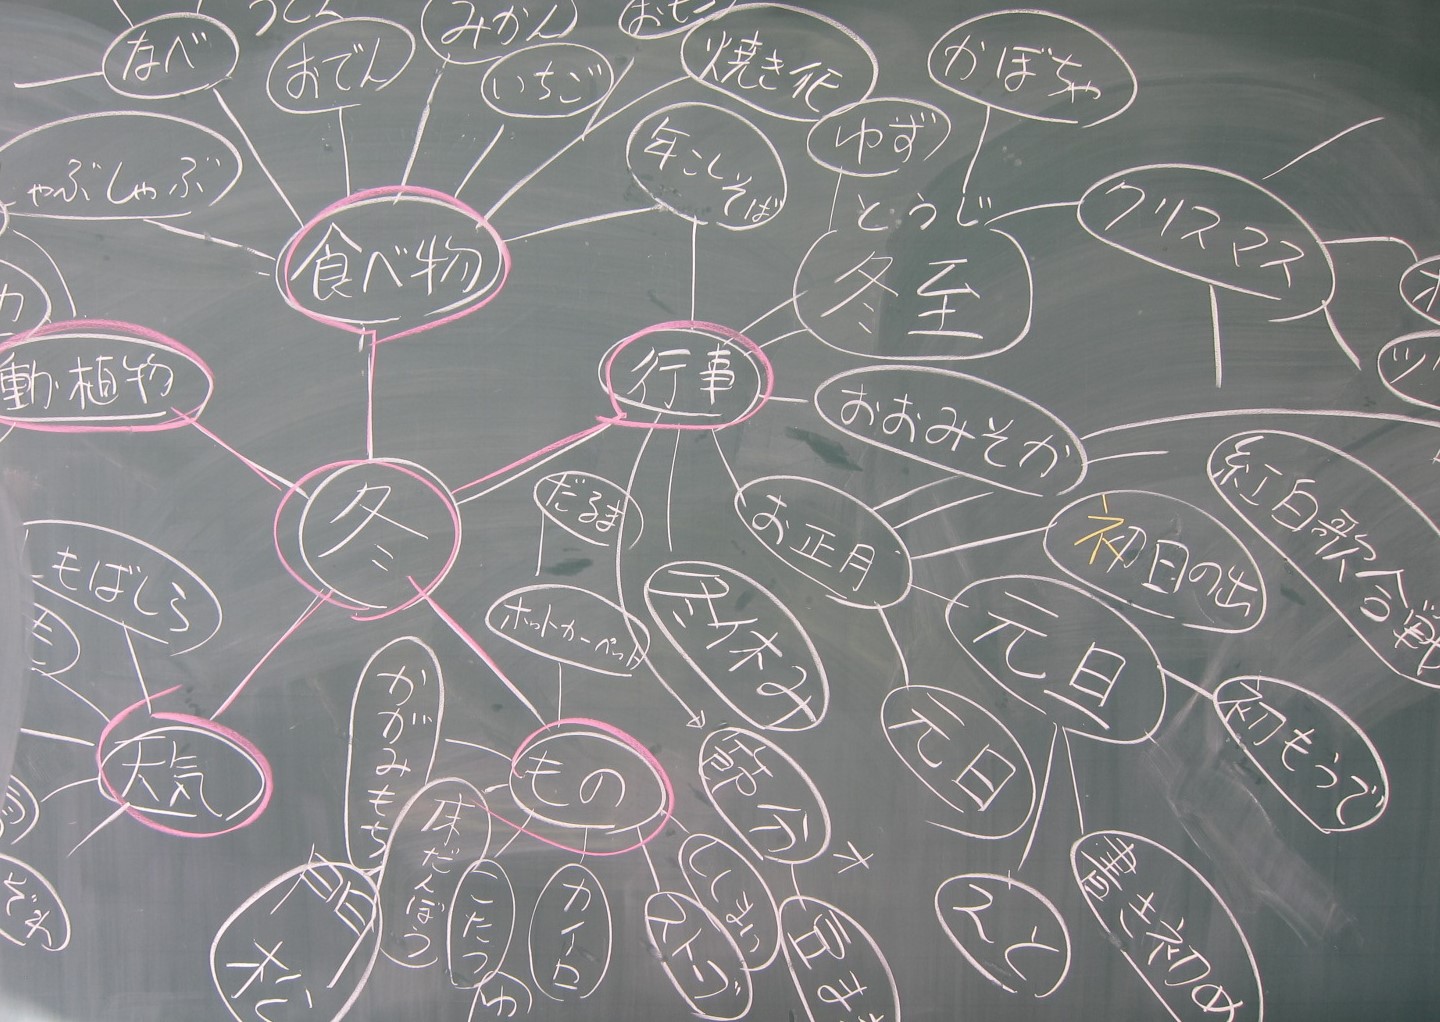 なべ
おでん
みかん
いちご
焼き化
かぼちゃ
ゆず
年こしそば
ゃぶしゃぶ
食べ物
とうじ
冬至
クリスマス
動植物
行事
おおみそか
冬
だるま
お正月
初日の出
紅白歌合戦
もばしら
ホットカーペット
冬休み
元日
元日
初もうで
天気
かがみもち
もの
節分
床だんぼう
こたつ
カイロ
ストーブ
えと
書き初め
豆ま
ぞれ